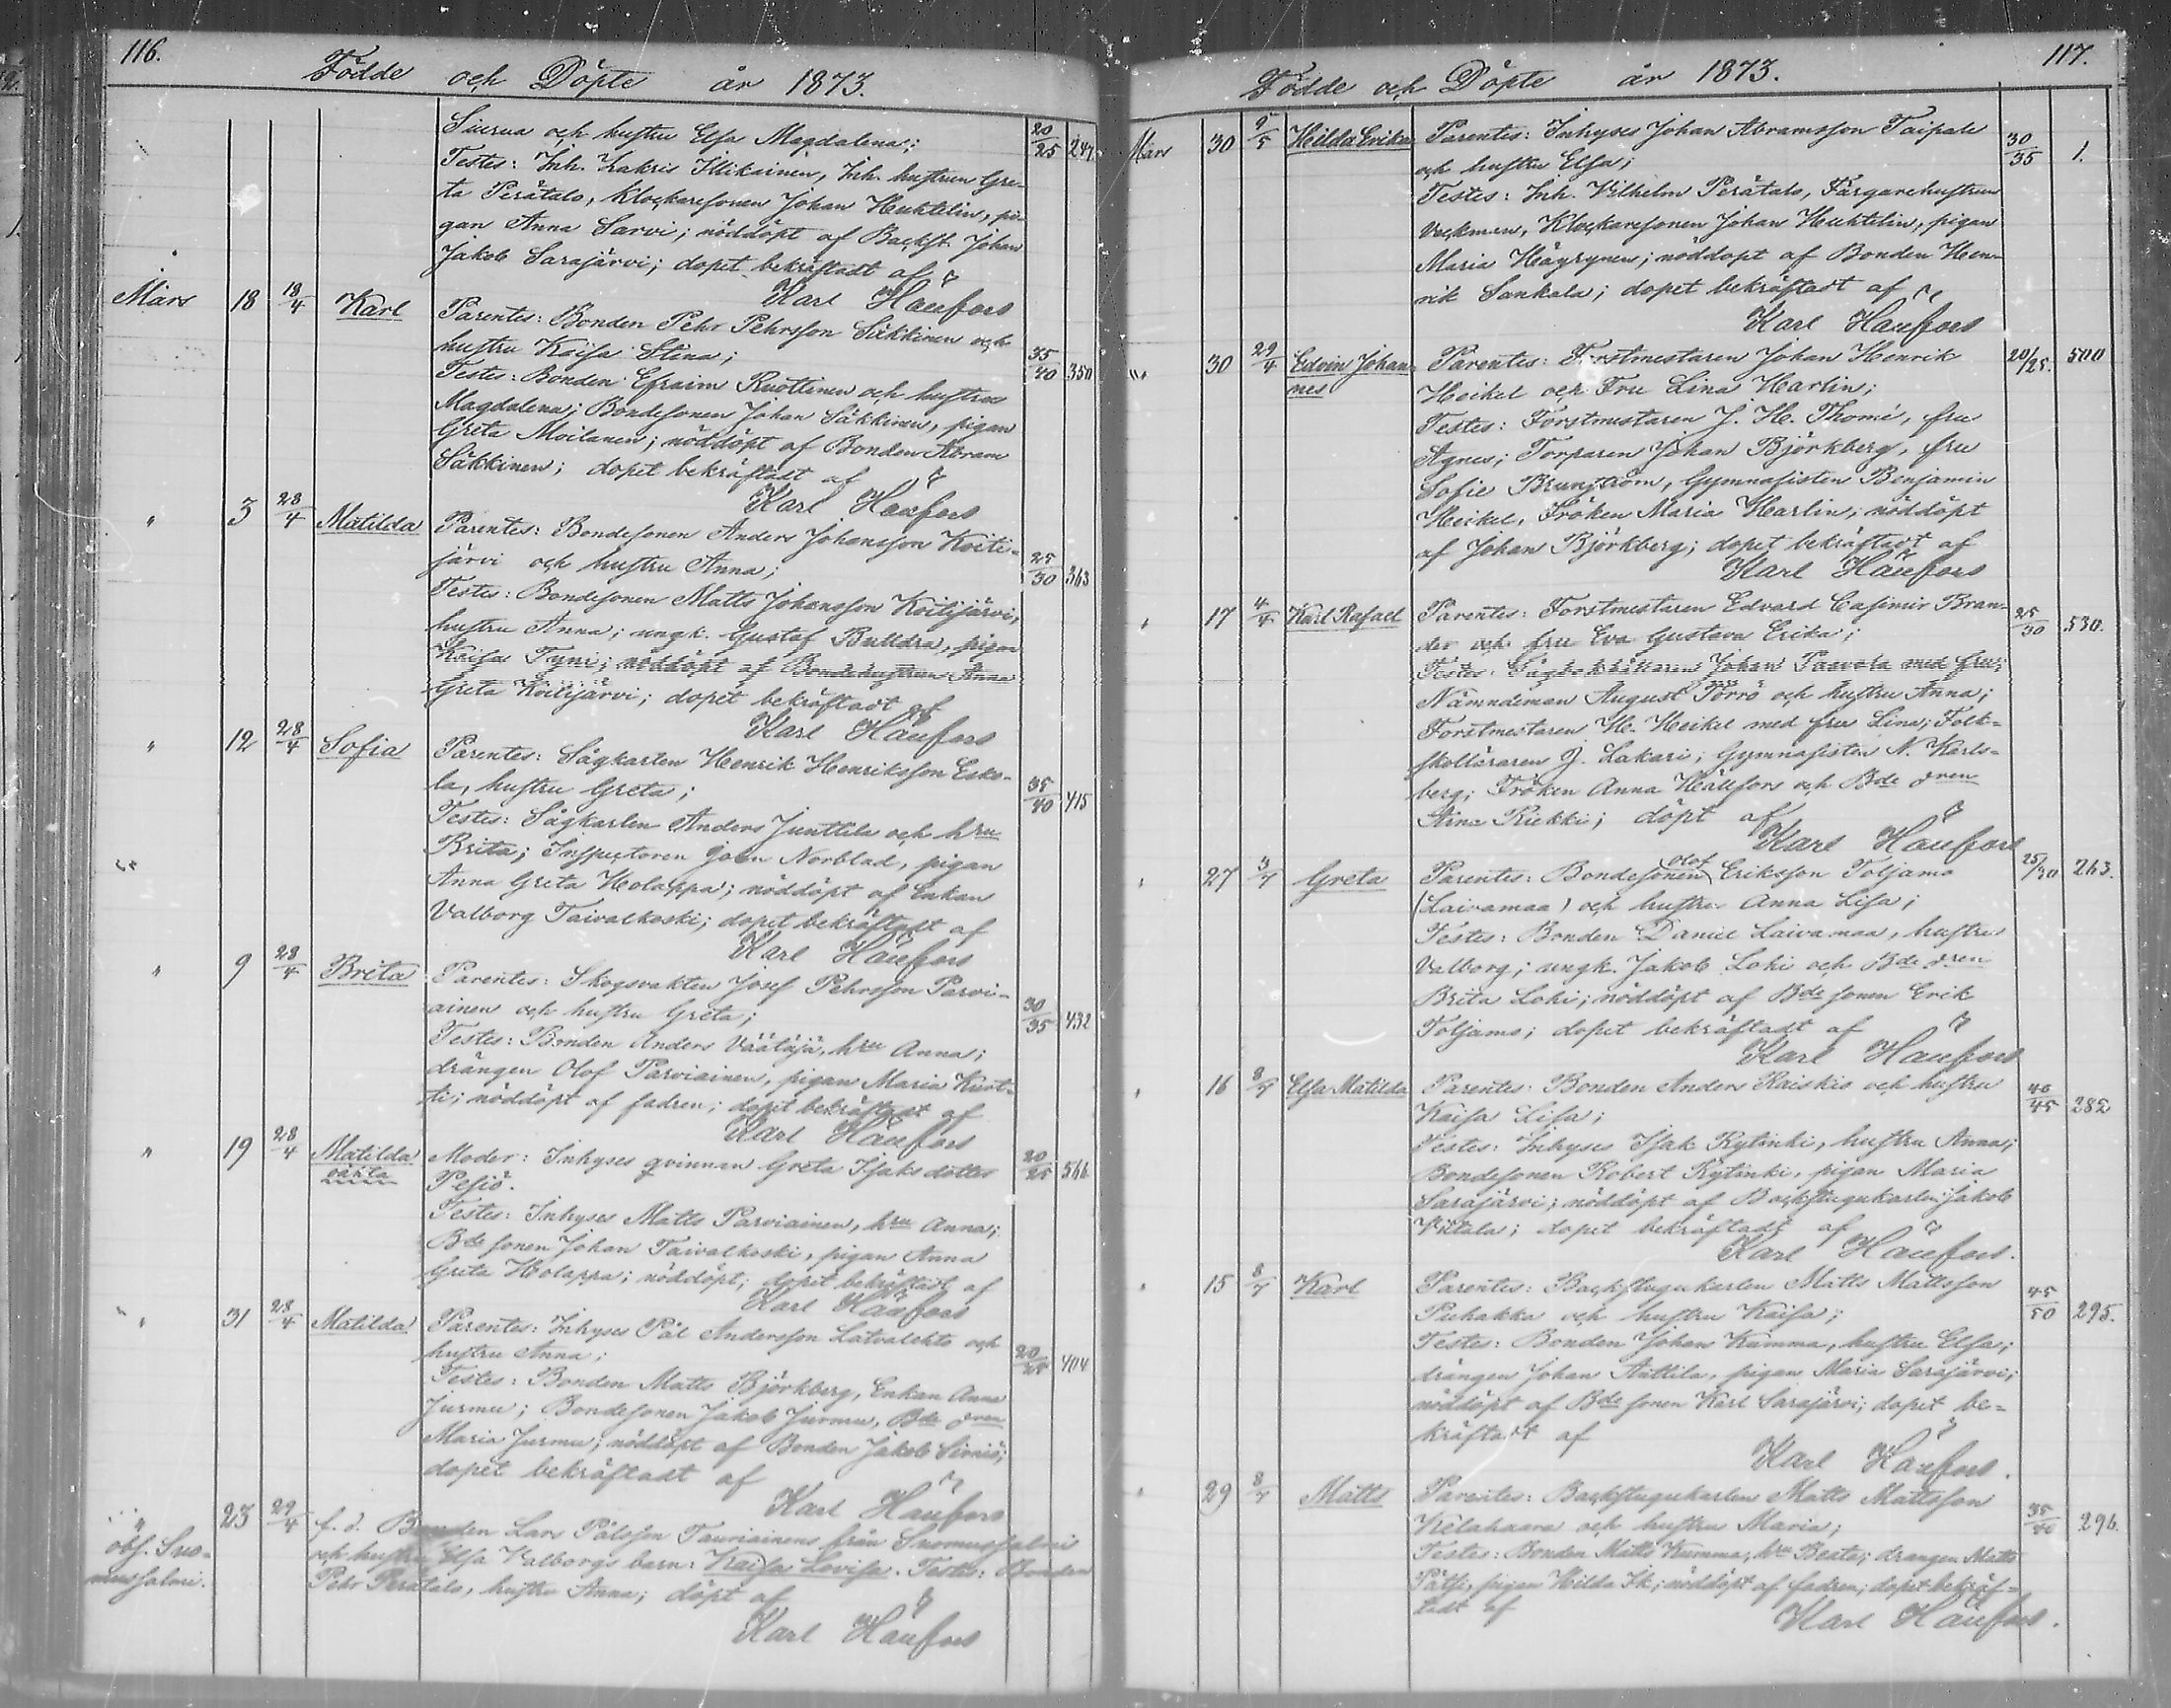 116.
Födde och Döpte år 1873.
Siurua och hustru Elsa Magdalena; 20/25 247.
Testes: Inh. Zakris Illikainen, Inh. hustrun Gre-
ta Perätalo, Klockaresonen Johan Huktelin, pi-
gan Anna Sarvi; nöddöpt af Backst. Johan
Jakob Sarajärvi; dopet bekräftadt af
Karl Häufors
Mars 18 18/4 Karl Parentes: Bonden Pehr Pehrsson Säkkinen och
hustru Kaisa Stina; 35/40 350
Testes: Bonden Efraim Ruottinen och hustru
Magdalena; Bondesonen Johan Säkkinen, pigan
Greta Moilanen; nöddöpt af Bonden Abram
Säkkinen; dopet bekräftadt af
Karl Häufors
" 3 28/4 Matilda Parentes: Bondesonen Anders Johansson Koiti-
järvi och hustru Anna; 25/30 363
Testes: Bondesonen Matts Johansson Koitijärvi,
hustru Anna; ungk. Gustaf Bulldra, pigan
Kaisa Tyni; nöddöpt af Bondehustrun Anna
Greta Koitijärvi; dopet bekräftadt af
Karl Häufors
" 12 28/4 Sofia Parentes: Sågkarlen Henrik Henriksson Esko-
la, hustru Greta; 35/40 415
Testes: Sågkarlen Anders Junttila och hru
Brita; Inspectoren Norblad, pigan
Anna Greta Holappa; nöddöpt af Enkan
Valborg Taivalkoski; dopet bekräftadt af
Karl Häufors
" 9 28/4 Brita Parentes: Skogsvakten Josef Pehrsson Parvi-
ainen och hustru Greta; 30/35 432
Testes: Bonden Anders Väätäjä, hru Anna;
drängen Olof Parviainen, pigan Maria Kurt-
ti; nöddöpt af fadren; dopet bekräftadt af
Karl Häufors
" 19 28/4 Matilda Moder: Inhyses qvinnan Greta Isaksdotter 20/25 566
oäkta Pesiö.
Testes: Inhyses Matts Parviainen, hru Anna;
Bde sonen Johan Taivalkoski, pigan Anna
Greta Holappa; nöddöpt; dopet bekräftadt af
Karl Häufors
" 31 28/4 Matilda Parentes: Inhyses Pål Andersson Latvalehto och
hustru Anna; 20/25 404
Testes: Bonden Matts Björkberg, Enkan Anna
Jurmu; Bondesonen Jakob Jurmu, Bde dren
Maria Jurmu; nöddöpt af Bonden Jakob Sirniö;
dopet bekräftadt af
Karl Häufors
" 23 29/4 f. d. Bonden Lars Pålsson Tauriainens från Suomussalmi
obs. Suo- och hustru Elsa Valborgs barn: Kaisa Lovisa. Testes: Bonden
mussalmi. Pehr Perätalo, hustru Anna; döpt af
Karl Häufors
117.
Födde och Döpte år 1873.
Mars 30 9/5 Hilda Erika Parentes: Inhyses Johan Abramsson Taipale 30/35 1.
och hustru Elsa;
Testes: Inh. Vilhelm Perätalo, Färgarehustrun
Veckman, Klockaresonen Johan Huktelin, pigan
Maria Häyrynen; nöddöpt af Bonden Hen-
rik Sankala; dopet bekräftadt af
Karl Häufors
" 30 29/4 Edvin Johan- Parentes: Forstmestaren Johan Henrik 20/25. 500
nes Heikel och Fru Lina Harlin;
Testes: Forstmestaren J. H. Thomé, fru
Agnes; Torparen Johan Björkberg, fru
Sofie Brunström, Gymnasisten Benjamin
Heikel, Fröken Maria Harlin; nöddöpt
af Johan Björkberg; dopet bekräftadt af
Karl Häufors
" 17 4/4 Karl Rafael Parentes: Forstmestaren Edvard Casimir Bran- 25/30 530.
der och fru Eva Gustava Erika;
Testes: Sågbokhållaren Johan Paavola med fru;
Nämndeman August Törrö och hustru Anna;
Forstmestaren H. Heikel med fru Lina; Folk-
skolläraren J. Lakari; Gymnasisten N. Karls-
berg; Fröken Anna Häufors och Bde dren
Aina Riekki; döpt af
Karl Häufors
" 27 Greta Parentes: Bondesonen Olof Eriksson Toljamo 25/30 263.
(Laivamaa) och hustru Anna Lisa;
Testes: Bonden Daniel Laivamaa, hustru
Valborg; ungk. Jakob Lohi och Bde dren
Brita Lohi; nöddöpt af Bde sonen Erik
Toljamo; dopet bekräftadt af
Karl Häufors
" 16 8/5 Elsa Matilda Parentes: Bonden Anders Raiskio och hustru 40/45 282
Kaisa Lisa;
Testes: Inhyses Isak Kytinki, hustru Anna;
Bondesonen Robert Kytinki, pigan Maria
Sarajärvi; nöddöpt af Backstugukarlen Jakob
Viitala; dopet bekräftadt af
Karl Häufors.
" 15 Karl Parentes: Backstugukarlen Matts Mattsson 45/50 295.
Puhakka och hustru Kaisa;
Testes: Bonden Johan Kumma, hustru Elsa;
drängen Johan Anttila, pigan Maria Sarajärvi;
nöddöpt af Bde sonen Karl Sarajärvi; dopet be-
kräftadt af
Karl Häufors.
" 29 Matts Parentes: Backstugukarlen Matts Mattsson 35/40 296.
Kelahaara och hustru Maria;
Testes: Bonden Matts Kumma, hru Beata; drängen Matts
Pätsi, pigan Hilda Ik; nöddöpt af fadren; dopet bekräf-
tadt af
Karl Häufors.